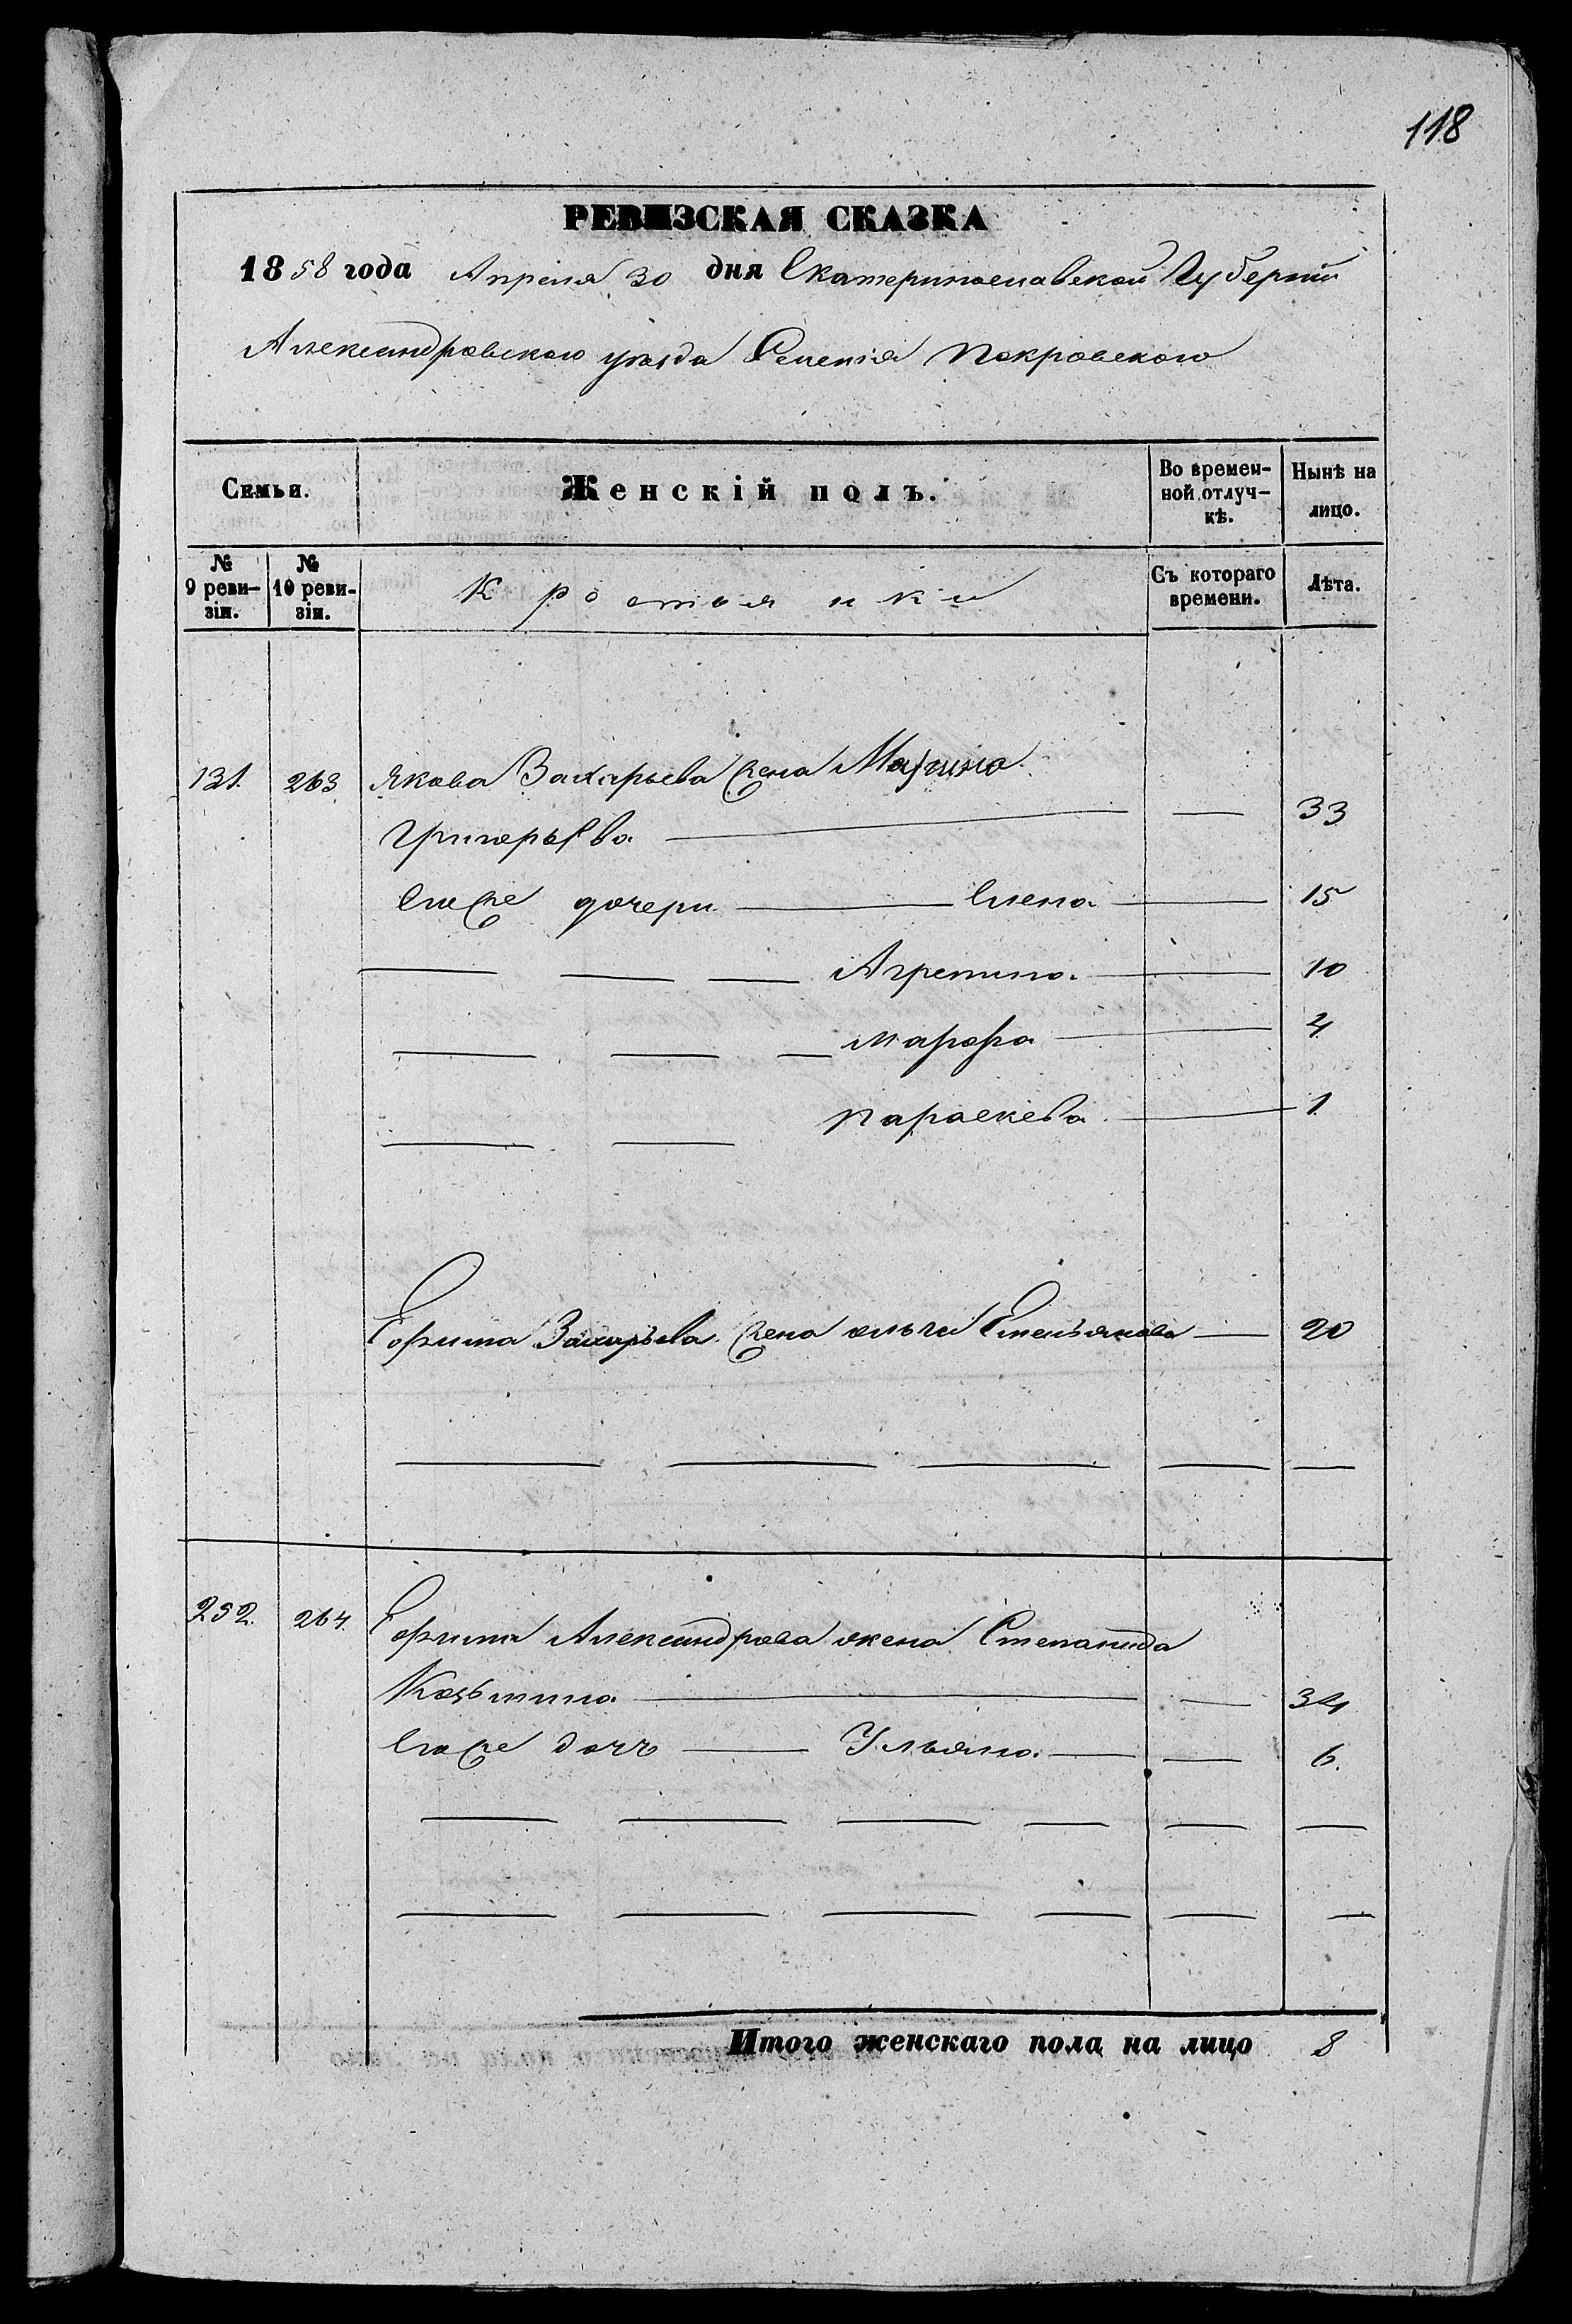 118
РЕВИЗСКАЯ СКАЗКА
1858 года Апреля 30 дня Екатеринославской Губернiи
Александровского уѣзда Селенiя Покровского
Семьи. Женскiй полъ. Во времен-ной отлуч-кѣ. Нынѣ на лицо.
№ 9 реви-зiи. № 10 реви-зiи. Крестьянки Съ котораго времени. Лѣта.
131. 263 Якова Захарьева жена Марина
Григорьева — 33
Его же дочери — Елена — 15
Агрепина — 10
Марфа — 4
Параскева — 1
Ефима Захарьева жена Ольга Емельянова — 20
252. 264. Ефима Александрова жена Степанида
Козьмина — 34
Его же дочь — Ульяна — 6.
Итого женскаго пола на лицо 8